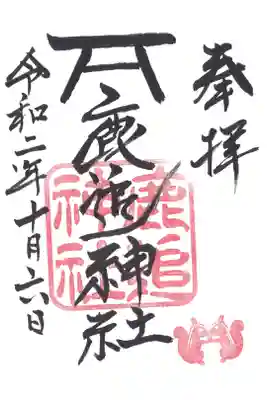 奉拝
鹿追神社
鹿追
神社
令和二年十月六日